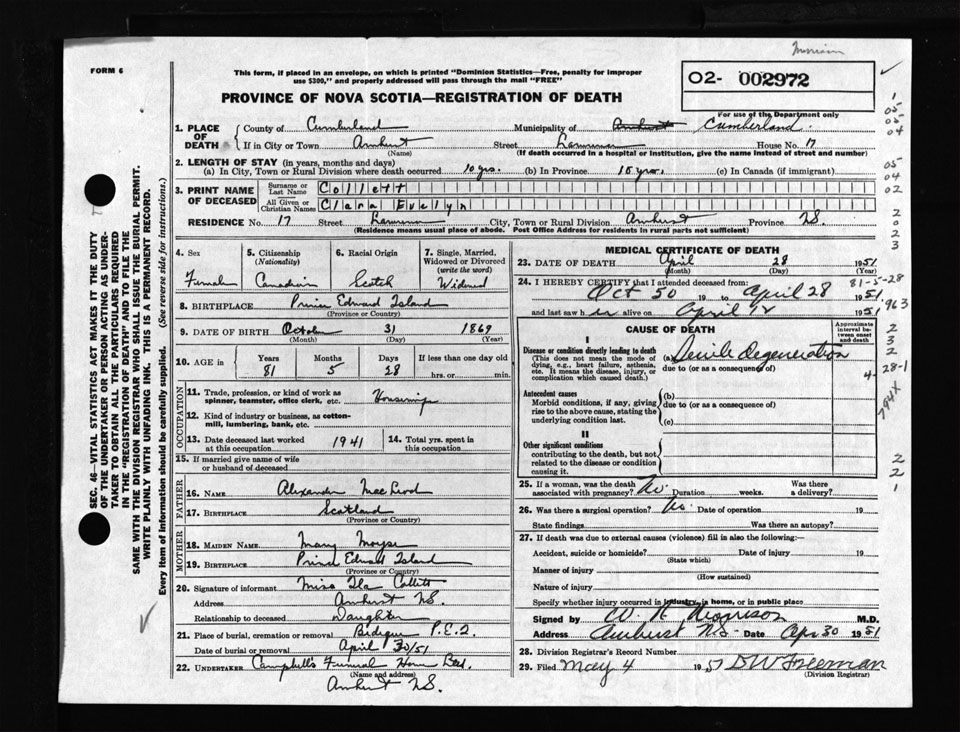 FORM 6
This form, if placed in an envelope, on which is printed "Dominion Statistics—Free, penalty for improper
use $300," and properly addressed will pass through the mail "FREE"
02- 002972
PROVINCE OF NOVA SCOTIA—REGISTRATION OF DEATH
For use of the Department only
1. PLACE OF DEATH County of Cumberland Municipality of Amherst Cumberland
If in City or Town Amherst (Name) Street House No. 17
(If death occurred in a hospital or institution, give the name instead of street and number)
2. LENGTH OF STAY (in years, months and days)
(a) In City, Town or Rural Division where death occurred 10 yrs. (b) In Province 18 yrs. (c) In Canada (if immigrant)
3. PRINT NAME OF DECEASED Surname or Last Name Collett
All Given or Christian Names Clara Evelyn
RESIDENCE No. 17 Street City, Town or Rural Division Amherst Province NS
(Residence means usual place of abode. Post Office Address for residents in rural parts not sufficient)
4. Sex Female
5. Citizenship (Nationality) Canadian
6. Racial Origin Scotch
7. Single, Married, Widowed or Divorced (write the word) Widowed
8. BIRTHPLACE Prince Edward Island
(Province or Country)
9. DATE OF BIRTH October 31 1869
(Month) (Day) (Year)
10. AGE in Years 81 Months 5 Days 28 If less than one day old hrs. or min.
OCCUPATION
11. Trade, profession, or kind of work as spinner, teamster, office clerk, etc. Housewife
12. Kind of industry or business, as cotton-mill, lumbering, bank, etc.
13. Date deceased last worked at this occupation 1941
14. Total yrs. spent in this occupation
15. If married give name of wife or husband of deceased
FATHER
16. NAME Alexander MacLeod
17. BIRTHPLACE Scotland
(Province or Country)
MOTHER
18. MAIDEN NAME Mary Moyse
19. BIRTHPLACE Prince Edward Island
(Province or Country)
20. Signature of informant Miss Ila Collett
Address Amherst NS.
Relationship to deceased Daughter
21. Place of burial, cremation or removal Bideque P.E.I.
Date of burial or removal April 30/51
22. UNDERTAKER Campbell's Funeral Home
(Name and address)
Amherst NS.
MEDICAL CERTIFICATE OF DEATH
23. DATE OF DEATH April 28 1951
(Month) (Day) (Year)
24. I HEREBY CERTIFY that I attended deceased from: 81-5-28
Oct 50 19 to April 28 1951
and last saw her alive on April 12 1951
CAUSE OF DEATH
Approximate interval between onset and death
I
Disease or condition directly leading to death
(This does not mean the mode of dying, e.g., heart failure, asthenia, etc. It means the disease, injury, or complication which caused death.)
(a) Senile Degeneration
due to (or as a consequence of)
Antecedent causes
Morbid conditions, if any, giving rise to the above cause, stating the underlying condition last.
(b)
due to (or as a consequence of)
(c)
II
Other significant conditions
contributing to the death, but not related to the disease or condition causing it.
25. If a woman, was the death associated with pregnancy? No. Duration weeks. Was there a delivery?
26. Was there a surgical operation? No. Date of operation 19
State findings Was there an autopsy?
27. If death was due to external causes (violence) fill in also the following:—
Accident, suicide or homicide? Date of injury 19
(State which)
Manner of injury
(How sustained)
Nature of injury
Specify whether injury occurred in industry, in home, or in public place
Signed by W. R. Morrison M.D.
Address Amherst NS Date Apr 30 1951
28. Division Registrar's Record Number
29. Filed May 4 1951 D W Freeman
(Division Registrar)
SEC. 46—VITAL STATISTICS ACT MAKES IT THE DUTY
OF THE UNDERTAKER OR PERSON ACTING AS UNDER-
TAKER TO OBTAIN ALL THE PARTICULARS REQUIRED
IN THE "REGISTRATION OF DEATH" AND TO FILE THE
SAME WITH THE DIVISION REGISTRAR WHO SHALL ISSUE THE BURIAL PERMIT.
WRITE PLAINLY WITH UNFADING INK. THIS IS A PERMANENT RECORD.
Every item of information should be carefully supplied. (See reverse side for instructions.)
1
05
05
04
05
04
02
2
0
2
3
963
2
3
2
28-1
794x
2
2
1